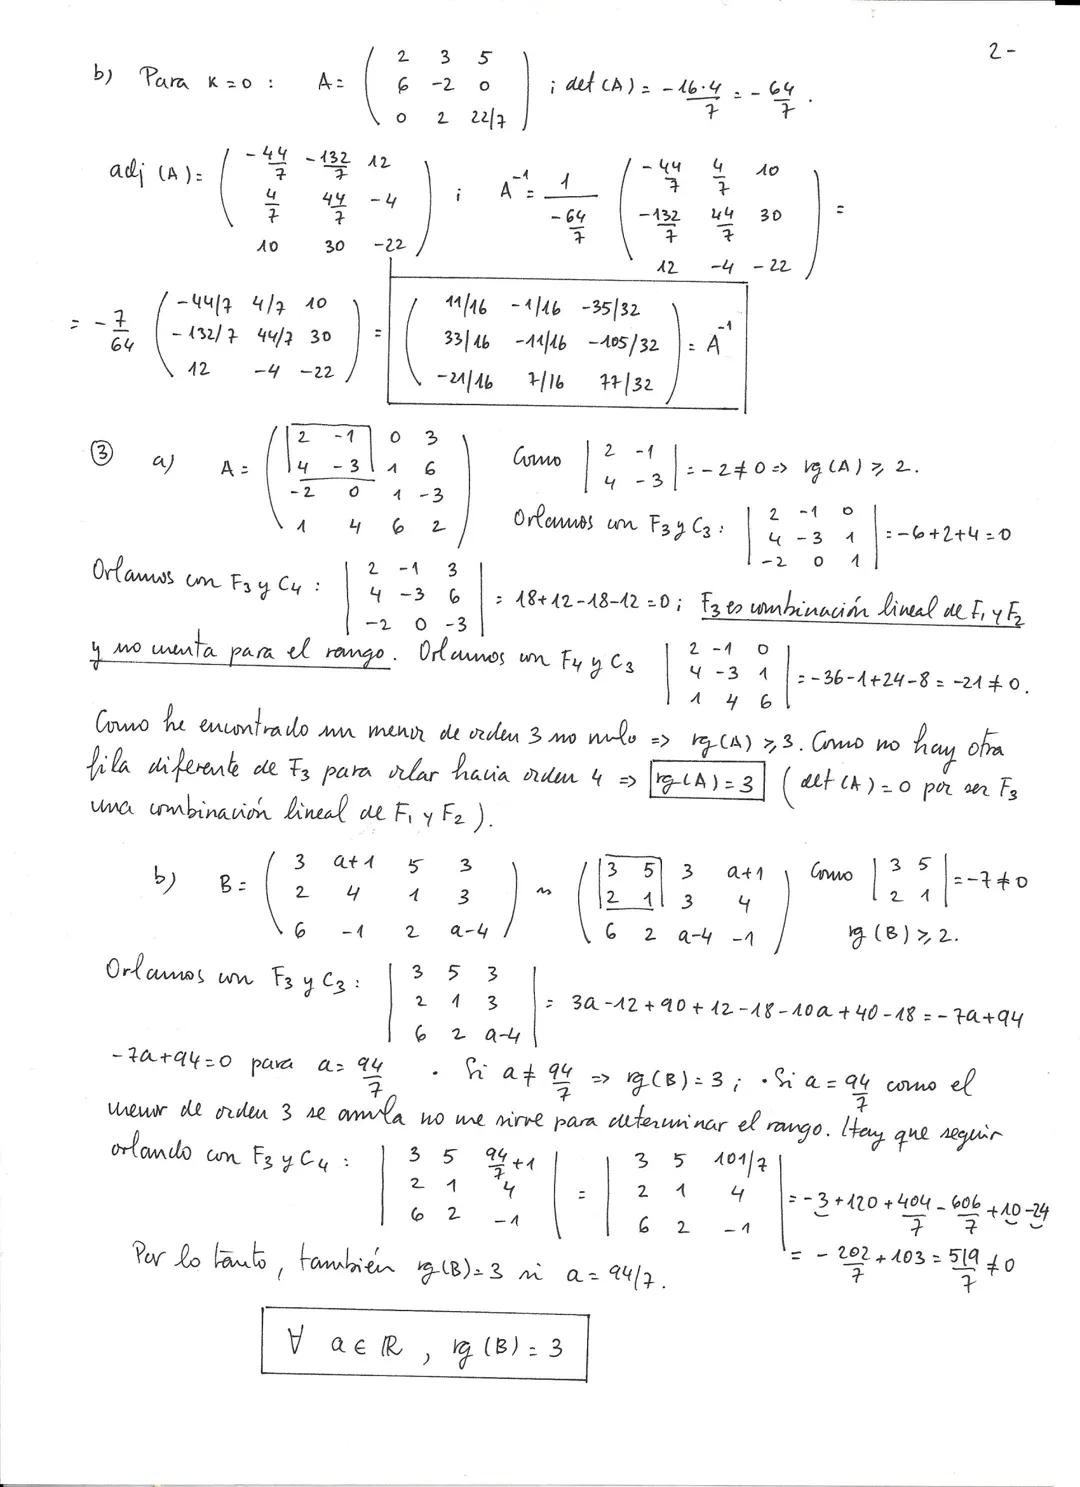 2-
b) Para K=0 : A= ( 2 3 5 ; det(A) = -16·4/7 = -64/7 .
6 -2 0
0 2 22/7 )
adj (A)= ( -44/7 -132/7 12 ; A⁻¹ = 1/(-64/7) ( -44/7 4/7 10
4/7 44/7 -4 ) -132/7 44/7 30 ) =
10 30 -22 12 -4 -22
= -7/64 ( -44/7 4/7 10 = ( 11/16 -1/16 -35/32
-132/7 44/7 30 33/16 -11/16 -105/32 ) = A⁻¹
12 -4 -22 ) -21/16 7/16 77/32
③ a) A= ( 2 -1 0 3 Como | 2 -1
4 -3 1 6 4 -3 | = -2≠0 => rg(A) ⩾ 2.
-2 0 1 -3
1 4 6 2 ) Orlamos con F₃ y C₃ : | 2 -1 0
4 -3 1
-2 0 1 | = -6+2+4=0
Orlamos con F₃ y C₄ : | 2 -1 3
4 -3 6
-2 0 -3 | = 18+12-18-12=0 ; F₃ es combinación lineal de F₁ y F₂
y no cuenta para el rango. Orlamos con F₄ y C₃ | 2 -1 0
4 -3 1
1 4 6 | = -36-1+24-8 = -21≠0.
Como he encontrado un menor de orden 3 no nulo => rg(A) ⩾ 3. Como no hay otra
fila diferente de F₃ para orlar hacia orden 4 => rg(A)=3 ( det(A)=0 por ser F₃
una combinación lineal de F₁ y F₂ ).
b) B= ( 3 a+1 5 3 ~ ( 3 5 3 a+1 Como | 3 5
2 4 1 3 2 1 3 4 2 1 | = -7≠0
6 -1 2 a-4 ) 6 2 a-4 -1 ) rg(B) ⩾ 2.
Orlamos con F₃ y C₃ : | 3 5 3
2 1 3
6 2 a-4 | = 3a-12+90+12-18-10a+40-18 = -7a+94
-7a+94=0 para a= 94/7 · Si a≠ 94/7 => rg(B)=3 ; · Si a= 94/7 como el
menor de orden 3 se anula no me sirve para determinar el rango. Hay que seguir
orlando con F₃ y C₄ : | 3 5 94/7+1
2 1 4
6 2 -1 | = | 3 5 101/7
2 1 4
6 2 -1 | = -3+120+404/7-606/7+10-24
= -202/7+103 = 519/7 ≠0
Por lo tanto, también rg(B)=3 si a= 94/7.
∀ a ∈ ℝ , rg(B)=3